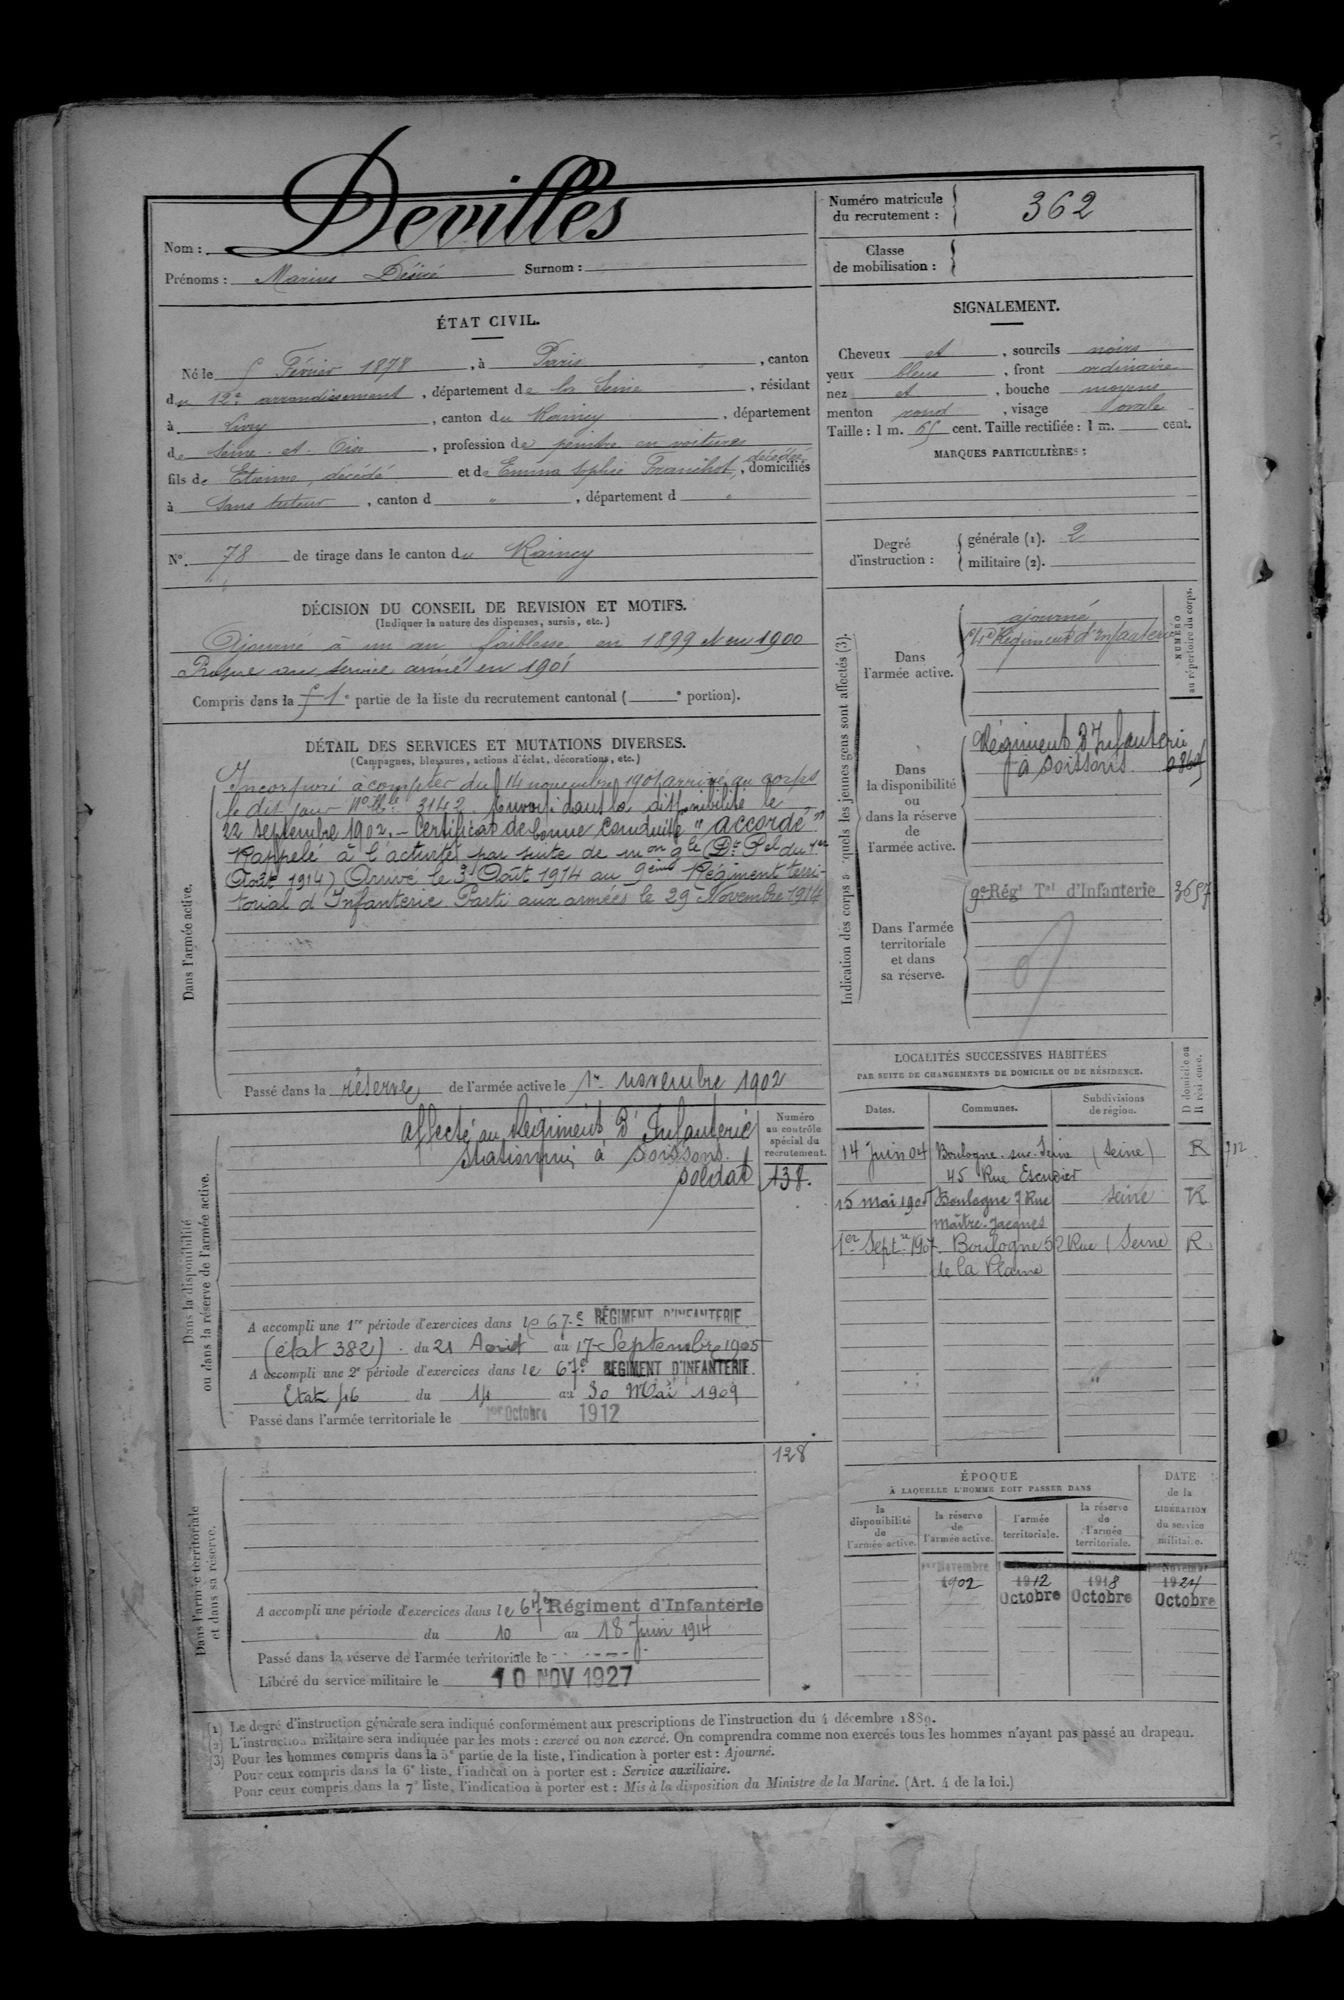 Devillès
Nom :
Prénoms : Marius Désiré Surnom :
Numéro matricule
du recrutement : 362
Classe
de mobilisation :
ÉTAT CIVIL.
Né le 5 Février 1878, à Paris " , canton
du 12e arrondissement, département de la Seine, résidant
à Livry, canton du Raincy, département
de Seine-et-Oise, profession de peintre en voitures
décédée
fils de Etienne, décédé et de Emma Sophie , domiciliés
à Sans tuteur, canton d " , département d "
N° 78 de tirage dans le canton du Raincy
SIGNALEMENT.
Cheveux et , sourcils noirs
yeux bleus , front ordinaire
nez et , bouche moyens
menton rond , visage ovale
Taille : 1 m. 65 cent. Taille rectifiée : 1 m. cent.
MARQUES PARTICULIÈRES :
Degré
d'instruction :
générale (1). 2
militaire (2).
DÉCISION DU CONSEIL DE REVISION ET MOTIFS.
(Indiquer la nature des dispenses, sursis, etc.)
Ajourné à un an, faiblesse en 1899 et en 1900
Propre au service armé en 1901
Compris dans la 1e partie de la liste du recrutement cantonal ( e portion).
DÉTAIL DES SERVICES ET MUTATIONS DIVERSES.
(Campagnes, blessures, actions d'éclat, décorations, etc.)
Dans l'armée active.
Incorporé à compter du 14 novembre 1901 arrivé au corps
le dit jour No Mle 3142 Envoyé dans la disponibilité le
22 septembre 1902. - Certificat de bonne conduite "accordé"
Rappelé à l'activité par suite de mon gle (Dt Pel du 1er
Août 1914) Arrivé le 3 Août 1914 au 9ème Régiment terri-
torial d'Infanterie Parti aux armées le 29 Novembre 1914
Passé dans la réserve de l'armée active le 1er novembre 1902
Indication des corps auxquels les jeunes gens sont affectés (3).
NUMÉRO
au répertoire du corps.
Dans
l'armée active.
ajourné
Régiment d'Infanterie
Dans
la disponibilité
ou
dans la réserve
de
l'armée active.
Régiment d'Infanterie
à Soissons.
Dans l'armée
territoriale
et dans
sa réserve.
9e Régt Tal d'Infanterie 3657
Dans la disponibilité
ou dans la réserve de l'armée active.
Numéro
au contrôle
spécial du
recrutement.
affecté au Régiment d'Infanterie
stationné à Soissons.
Soldat 138.
A accompli une 1re période d'exercices dans le 67e RÉGIMENT D'INFANTERIE
(état 382) du 21 Août au 17 Septembre 1905
A accompli une 2e période d'exercices dans le 67e RÉGIMENT D'INFANTERIE.
Etat 46 du 14 au 30 Mai 1909
Passé dans l'armée territoriale le 1er Octobre 1912
LOCALITÉS SUCCESSIVES HABITÉES
PAR SUITE DE CHANGEMENTS DE DOMICILE OU DE RÉSIDENCE.
D domicile ou
R résidence.
Dates. Communes. Subdivisions
de région.
14 Juin 04 Boulogne-sur-Seine (Seine) R
45 Rue Escudier
15 mai 1905 Boulogne 7 Rue Seine R
Maître-Jacques
1er Septre 1907 Boulogne 52 Rue (Seine R.
de la Plaine
Dans l'armée territoriale
et dans sa réserve.
128
A accompli une période d'exercices dans le 67e Régiment d'Infanterie
du 10 au 18 Juin 1914
Passé dans la réserve de l'armée territoriale le
Libéré du service militaire le 10 NOV 1927
ÉPOQUE
À LAQUELLE L'HOMME DOIT PASSER DANS
DATE
de la
LIBÉRATION
du service
militaire.
la
disponibilité
de
l'armée active.
la réserve
de
l'armée active.
l'armée
territoriale.
la réserve
de
l'armée
territoriale.
1er Novembre
1902 1912 1918 1924
Octobre Octobre Octobre
(1) Le degré d'instruction générale sera indiqué conformément aux prescriptions de l'instruction du 4 décembre 1889.
(2) L'instruction militaire sera indiquée par les mots : exercé ou non exercé. On comprendra comme non exercés tous les hommes n'ayant pas passé au drapeau.
(3) Pour les hommes compris dans la 5e partie de la liste, l'indication à porter est : Ajourné.
Pour ceux compris dans la 6e liste, l'indication à porter est : Service auxiliaire.
Pour ceux compris dans la 7e liste, l'indication à porter est : Mis à la disposition du Ministre de la Marine. (Art. 4 de la loi.)